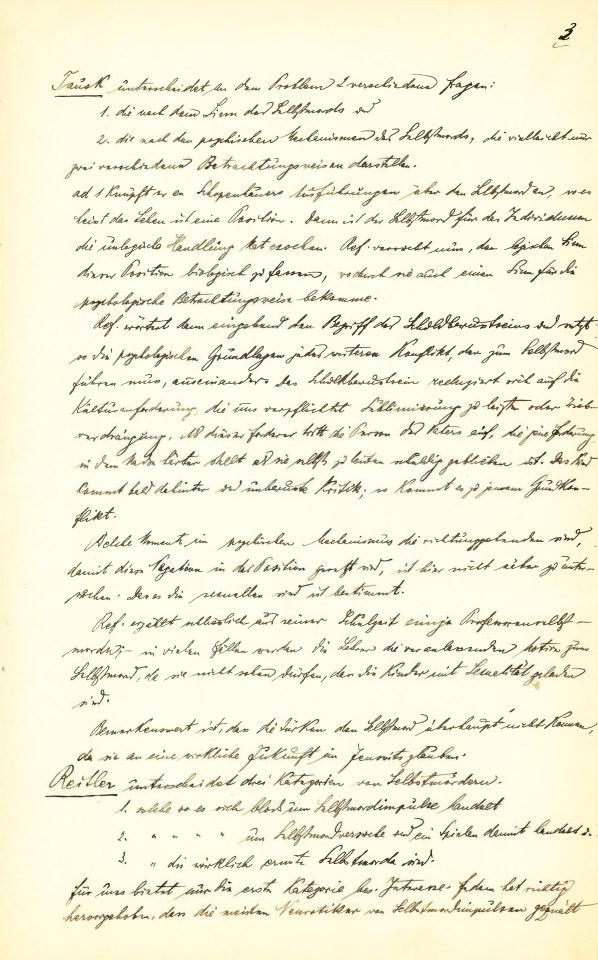 3
Tausk unterscheidet an dem Problem 2 verschiedene Fragen:
1. die nach dem Sinn des Selbstmords und
2. die nach den psychischen Mechanismen des Selbstmords, die vielleicht nur
zwei verschiedene Betrachtungsweisen darstellen.
ad 1 knüpft er an Schopenhauers Ausführungen über den Selbstmord an, wo es
heisst das Leben ist eine Position. Dann ist der Selbstmord für das Individuum
die unlogische Handlung kat exochen. Ref. versucht nun, den logischen Sinn
dieser Position biologisch zu fassen, wodurch sie auch einen Sinn für die
psychologische Betrachtungsweise bekomme.
Ref. erörtert dann eingehend den Begriff des Schuldbewusstseins und setzt
so die psychologischen Grundlagen jedes weiteren Konflikts, der zum Selbstmord
führen muss, auseinander. Das Schuldbewusstsein reduziert sich auf die
Kulturanforderung, die uns verpflichtet Sublimierung zu leisten oder Trieb-
verdrängung. Als dieser Forderer tritt die Person des Vaters auf, die jene Forderung
in dem stellt als sie selbst zu leisten schuldig geblieben ist. Das Kind
kommt bald dahinter und unbewusste Kritik; so kommt es zu jenem Grundkon-
flikt.
Welche Momente im psychischen Mechanismus die richtunggebenden sind,
damit diese Negation in das Position gesetzt wird, ist hier nicht näher zu unter-
suchen. Dass es die sexuellen sind ist bestimmt.
Ref. erzählt schliesslich aus seiner Schulzeit einige Professorenselbst-
morde; – in vielen Fällen werden die Lehrer die veranlassenden Motive zum
Selbstmord, da sie nicht sehen dürfen, dass die Kinder mit Sexualität geladen
sind.
Bemerkenswert ist, dass die Türken den Selbstmord überhaupt nicht kennen,
da sie an eine wirkliche Zukunft im Jenseits glauben.
Reitler unterscheidet drei Kategorien von Selbstmördern.
1. solche wo es sich bloss um Selbstmordimpulse handelt
2. " " " " um Selbstmordversuche und ein Spielen damit handelt u.
3. " die wirklich ernste Selbstmorde sind.
Für uns bietet nur die erste Kategorie bes. Interesse. Federn hat richtig
hervorgehoben, dass die meisten Neurotiker von Selbstmordimpulsen gequält